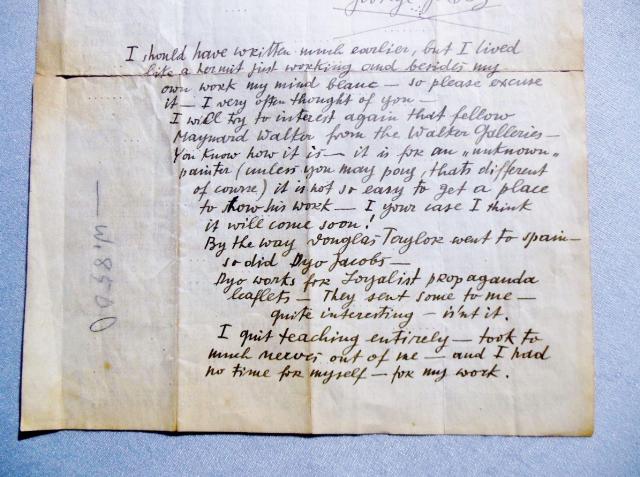 I should have written much earlier, but I lived
like a hermit just working and besides my
own work my mind blanc — so please excuse
it — I very often thought of you —
I will try to interest again that fellow
Maynard Walker from the Walker Galleries —
You know how it is — it is for an „unknown"
painter (unless you may pay, thats different
of course) it is not so easy to get a place
to show his work — I your case I think
it will come soon!
By the way Douglas Taylor went to Spain —
so did Dyo Jacobs —
Dyo works for Loyalist propaganda
leaflets — They sent some to me —
quite interesting — is'nt it.
I quit teaching entirely — took to
much nerves out of me — and I had
no time for myself — for my work.